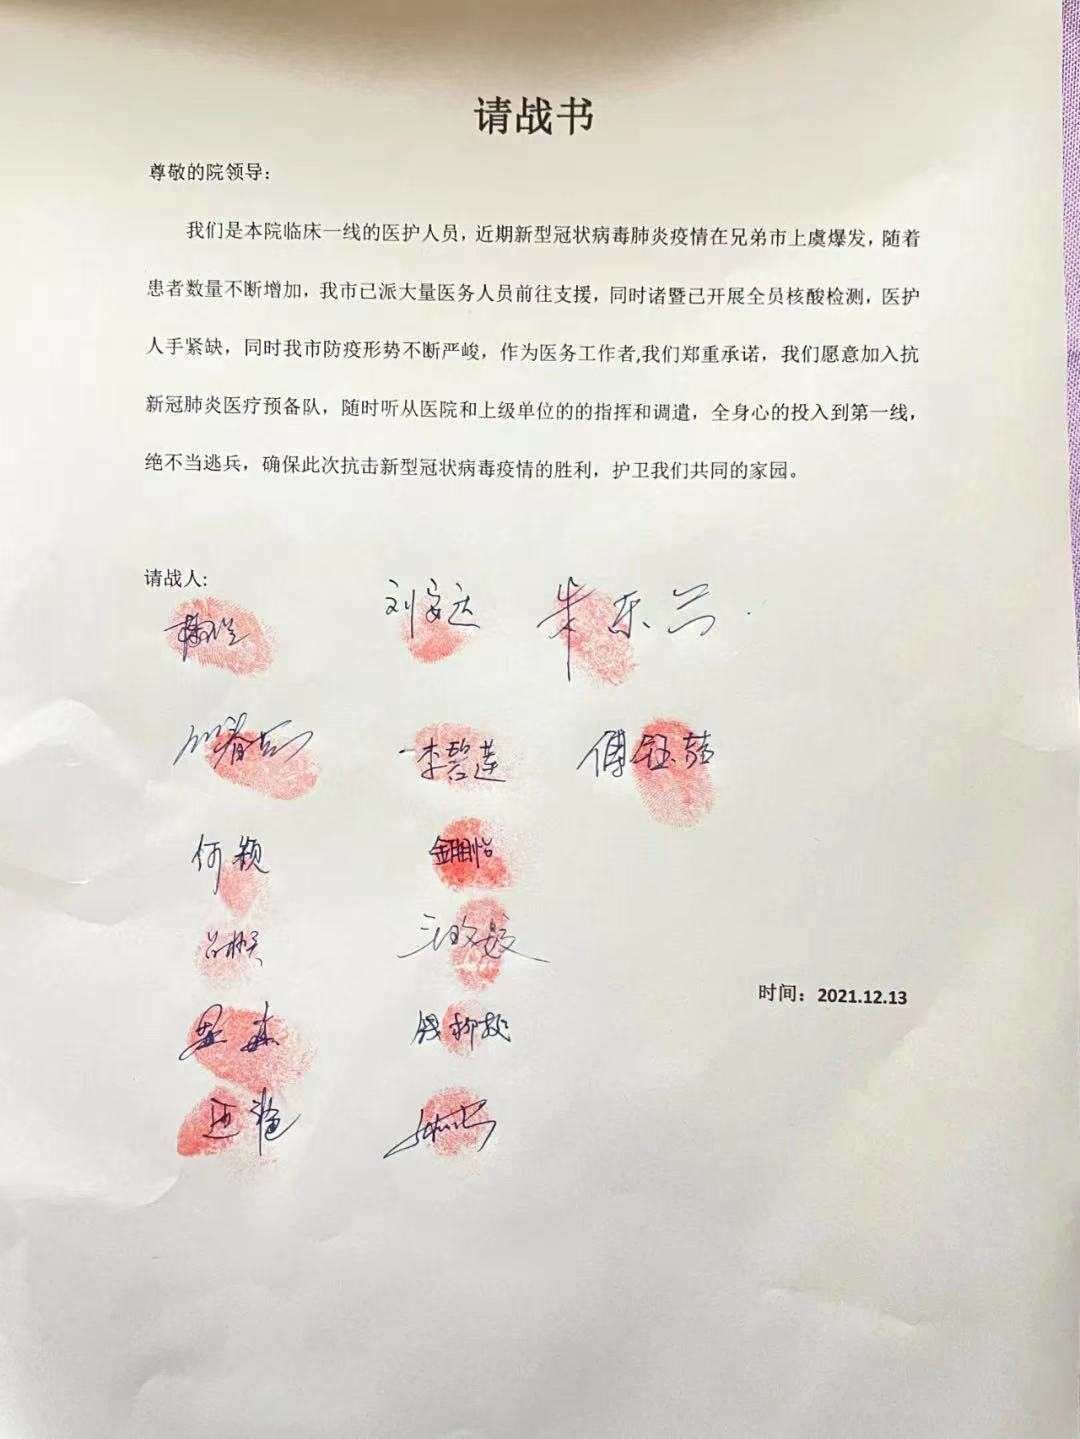 请战书
尊敬的院领导：
我们是本院临床一线的医护人员，近期新型冠状病毒肺炎疫情在兄弟市上虞爆发，随着
患者数量不断增加，我市已派大量医务人员前往支援，同时诸暨已开展全员核酸检测，医护
人手紧缺，同时我市防疫形势不断严峻，作为医务工作者,我们郑重承诺，我们愿意加入抗
新冠肺炎医疗预备队，随时听从医院和上级单位的的指挥和调遣，全身心的投入到第一线，
绝不当逃兵，确保此次抗击新型冠状病毒疫情的胜利，护卫我们共同的家园。
请战人:
刘安达 朱东兰
李碧莲 傅钰茹
何颖
钱柳桃
时间：2021.12.13